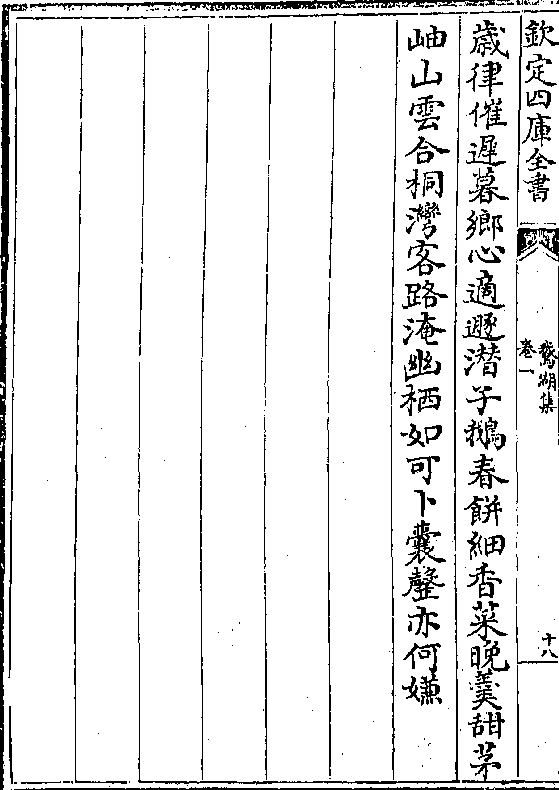 欽定四庫全書
鵝湖集
卷一
十八
歲律催遲暮鄉心適遯潛子鵝春餅細香菜晚羮甜茅
岫山雲合桐灣客路淹幽栖如可卜囊罄亦何嫌